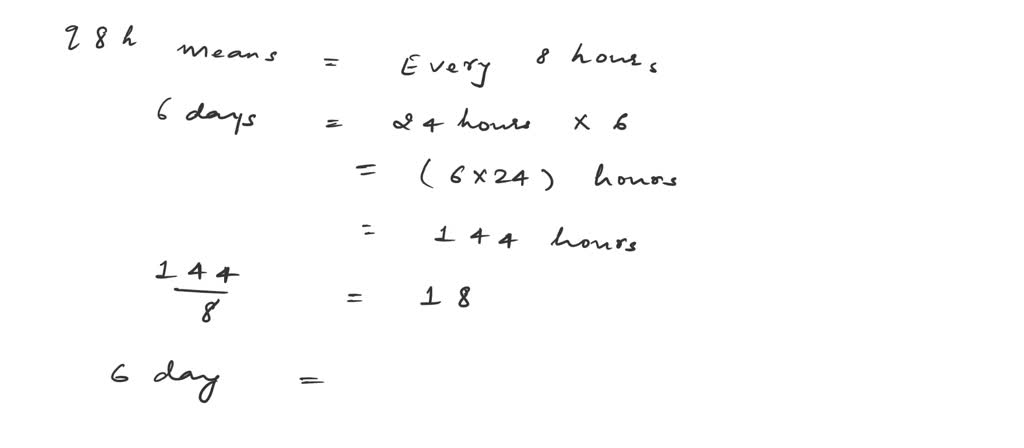 q 8 h means = Every 8 hours
6 days = 24 hours x 6
= ( 6 x 24 ) hours
= 144 hours
144/8 = 18
6 day =